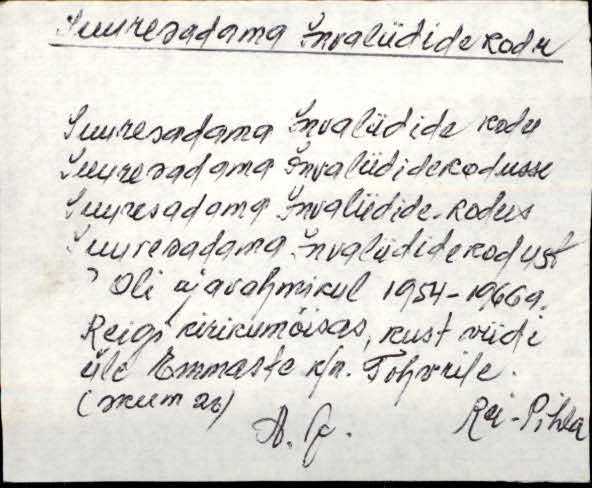 Suuresadama Invaliidide kodu
Suuresadama Invaliidide kodu
Suuresadama Invaliididekodusse
Suuresadama Invaliidide-kodus
Suuresadama Invaliididekodust
? Oli ajavahmikul 1954-1966a.
Reigi kirikumõisas, kust viidi
üle Emmaste k/n. Tohvrile.
(
A.
Rei-Pihla